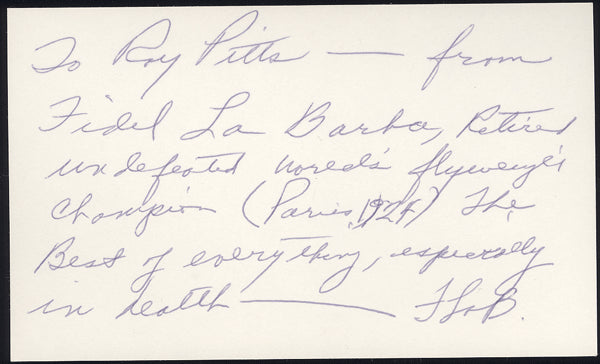 To Roy Pitts — from
Fidel La Barba, Retired
undefeated World's flyweight
Champion (Paris, 1924) The
Best of everything, especially
in health — FLaB.